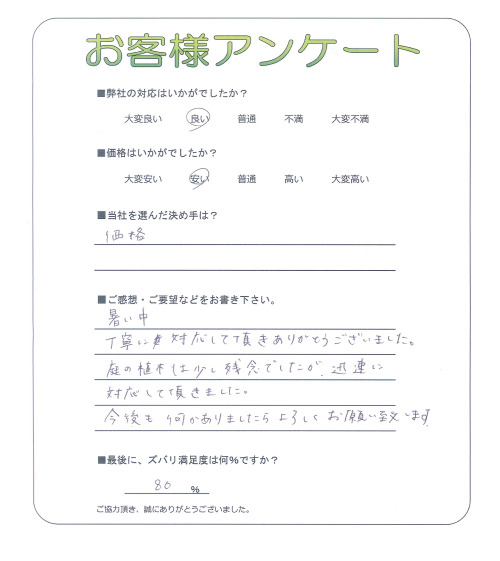 お客様アンケート
■弊社の対応はいかがでしたか？
大変良い 良い 普通 不満 大変不満
■価格はいかがでしたか？
大変安い 安い 普通 高い 大変高い
■当社を選んだ決め手は？
価格
■ご感想・ご要望などをお書き下さい。
暑い中
丁寧に対応して頂きありがとうございました。
庭の植木は少し残念でしたが、迅速に
対応して頂きました。
今後も何かありましたらよろしくお願い致します
■最後に、ズバリ満足度は何%ですか？
80 %
ご協力頂き、誠にありがとうございました。